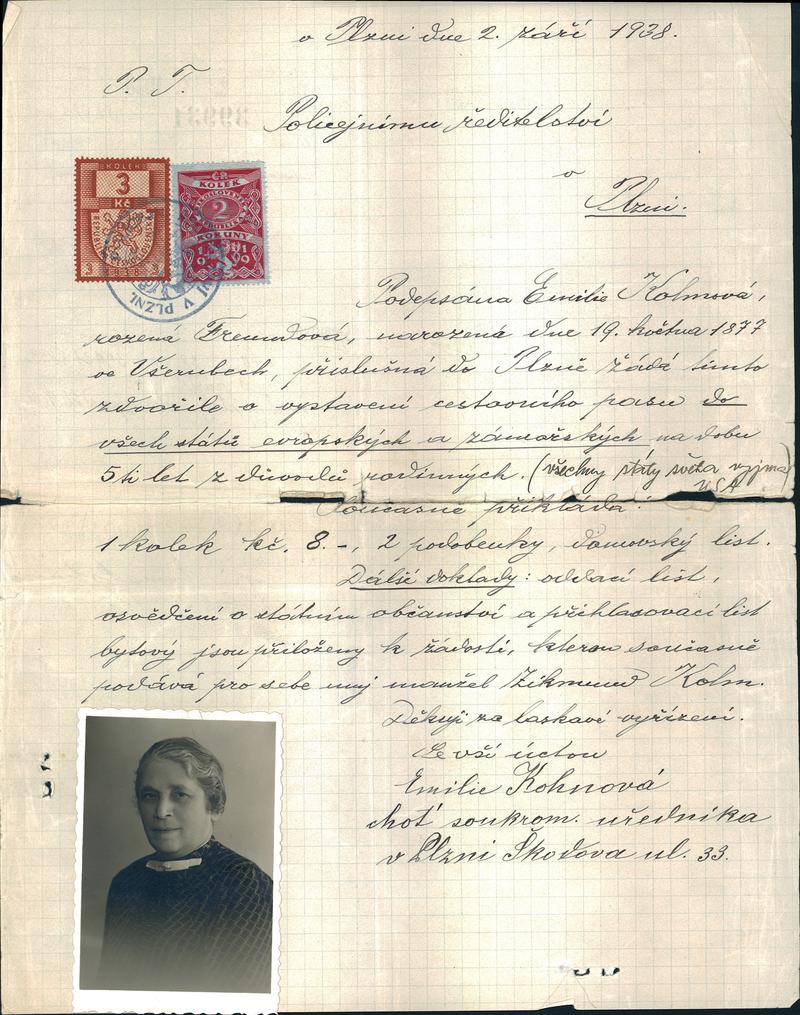 v Plzni dne 2. září 1938.
P. T.
Policejnímu ředitelství
v
Plzni.
KOLEK
3
Kč
KOLEK
2
KORUNY
1919
V PLZNI
Podepsána Emilie Kohnová,
rozená Freundová, narozená dne 19. května 1877
ve Všerubech, příslušná do Plzně žádá tímto
zdvořile o vystavení cestovního pasu do
všech států evropských a zámořských na dobu
5ti let z důvodů rodinných. (všechny státy světa vyjma
USA
Současně přikládá:
1 kolek kč. 8.-, 2 podobenky, domovský list.
Další doklady: oddací list,
osvědčení o státním občanství a přihlašovací list
bytový jsou přiloženy k žádosti, kterou současně
podává pro sebe můj manžel Zikmund Kohn.
Děkuji za laskavé vyřízení.
Se vší úctou
Emilie Kohnová
choť soukrom. úředníka
v Plzni Škodova ul. 33.